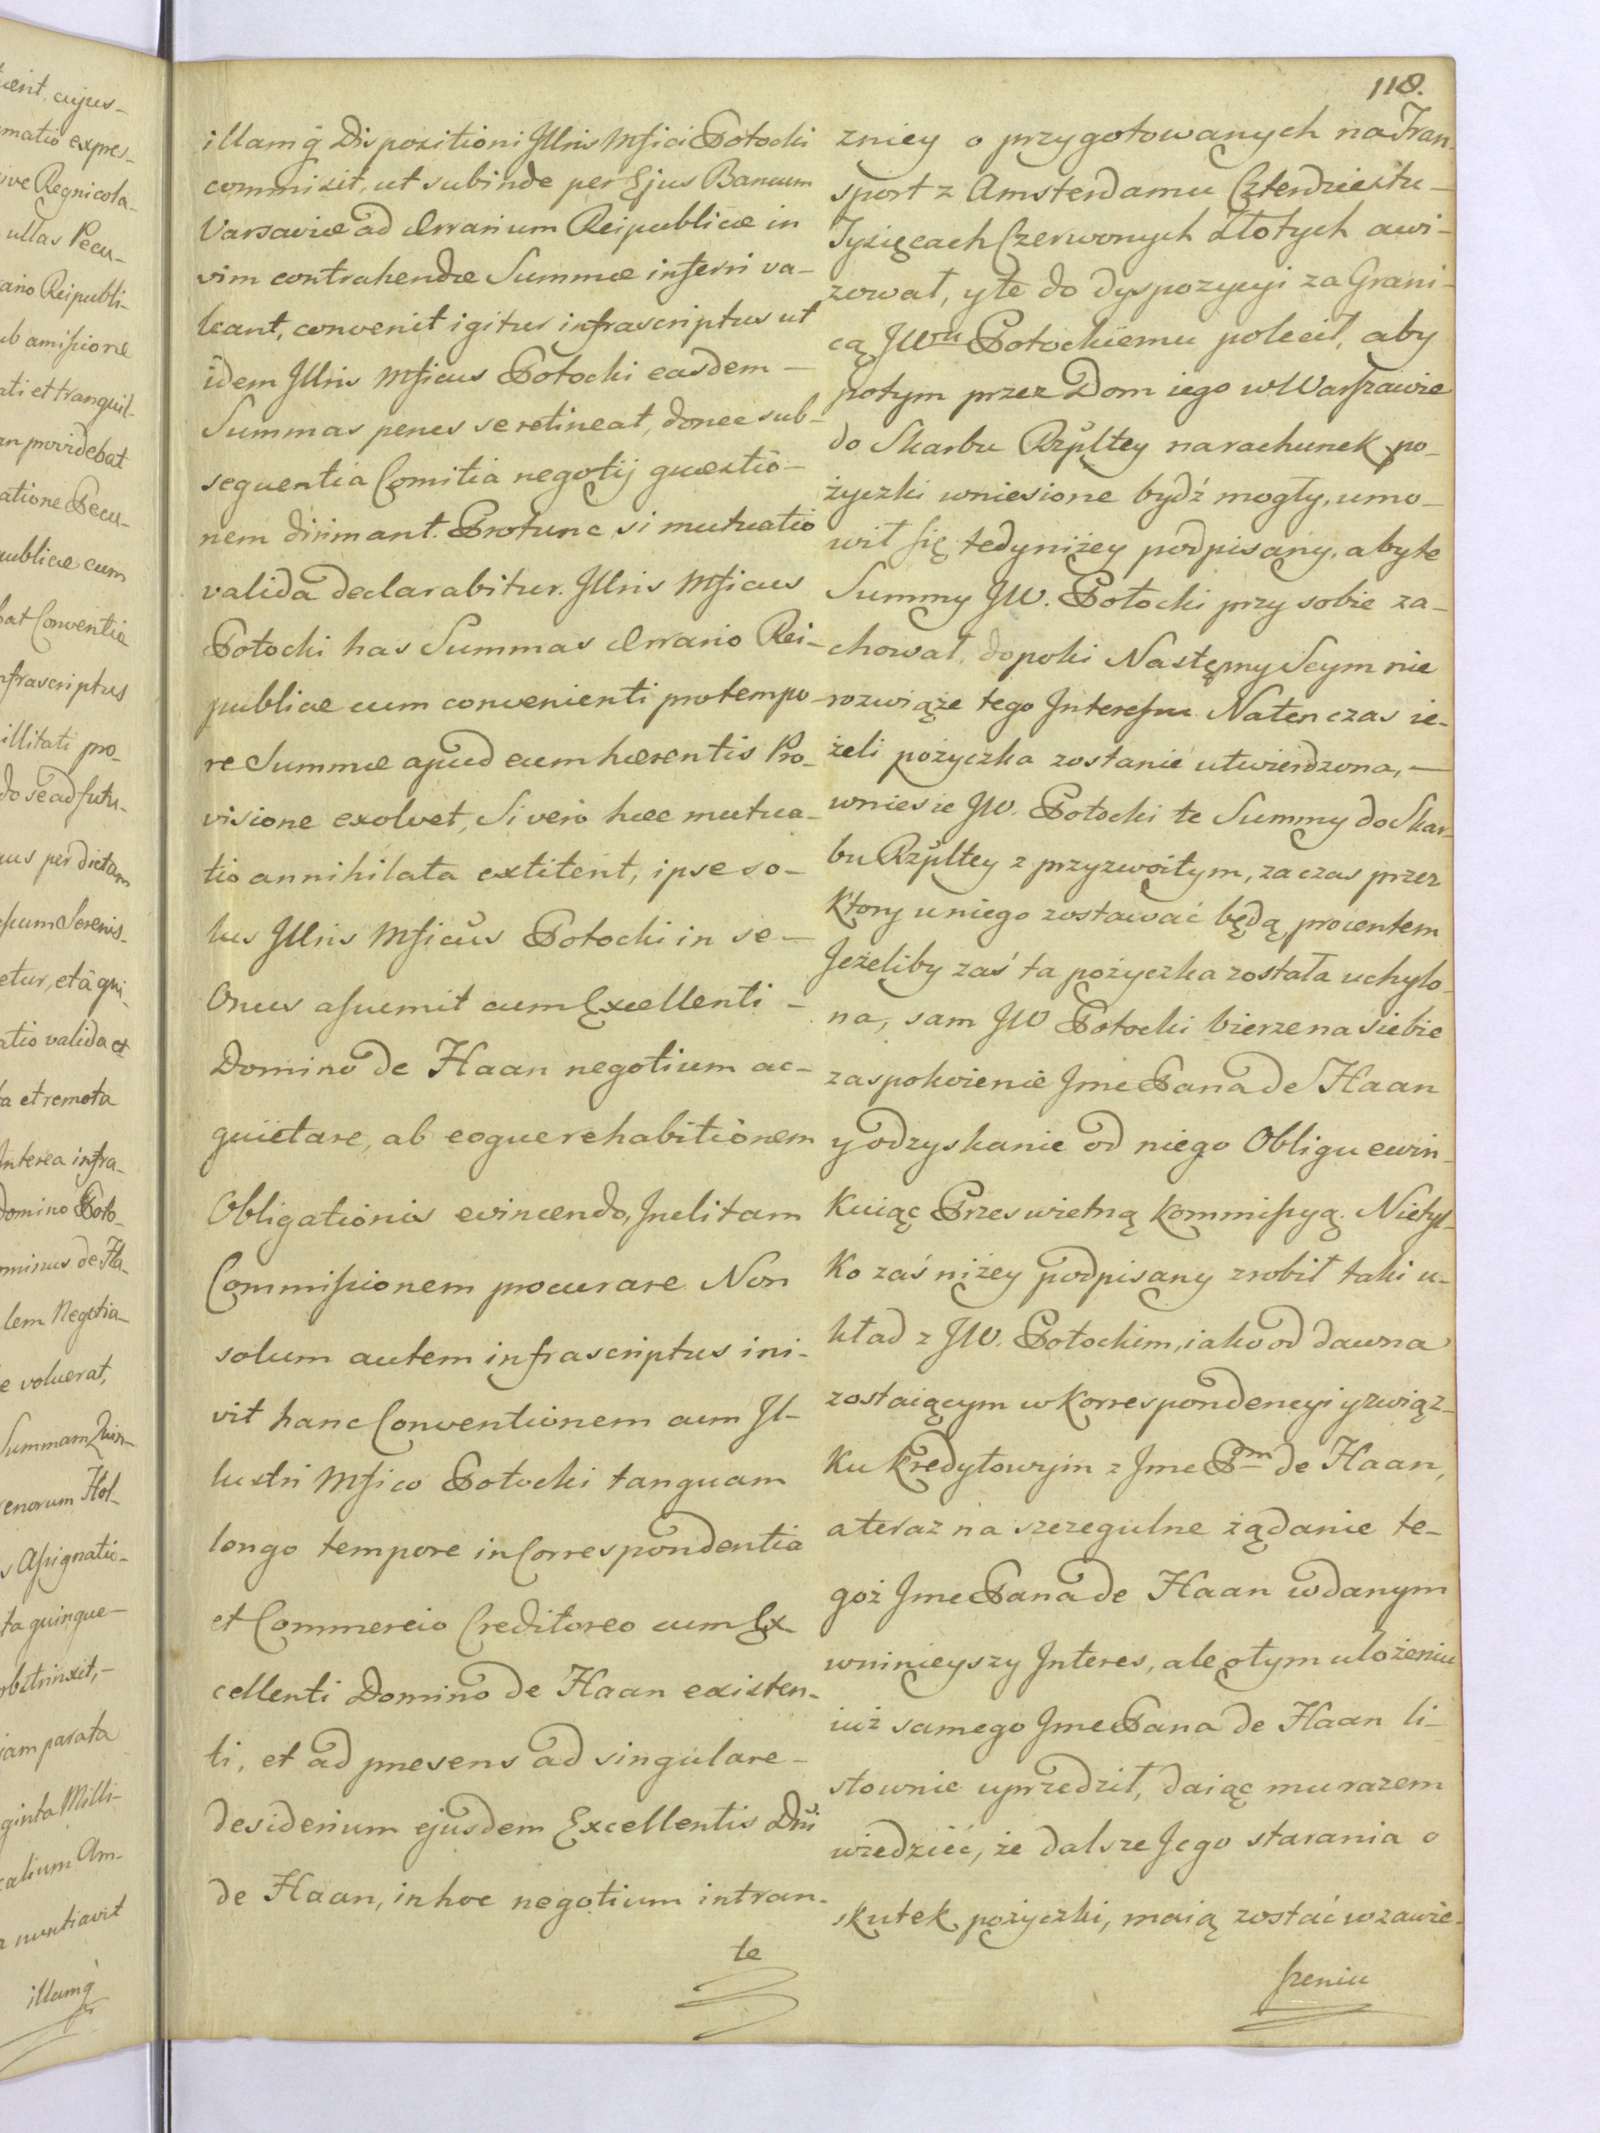 tient, cujus-
matio expres-
sive Regnicola-
ullas Pecu-
ario Reipubli-
ub amissione
ati et tranquil-
an providebat
atione Pecu-
publicæ cum
bat Conventiæ
nfrascriptus
illitati pro-
do se ad futu-
uus per dictam
Serenis-
etur, et à qui-
atio valida et
ta et remota
Interea infra-
Domino Poto-
minus de Ha-
lem Negotia-
e voluerat,
Summam
enorum Hol-
s Assignatio-
ta quinque-
obstrinxit,-
iam parata
ginta Milli-
calium Am-
nuntiavit
illamq̃
118.
illamq̃ Dispositioni Jllris Mfici Potocki
commisit, ut subinde per Ejus Bancum
Varsaviæ ad Ærarium Reipublicæ in
vim contrahendæ Summæ inferri va-
leant, convenit igitur infrascriptus ut
idem Jllris Mficus Potocki easdem -
Summas penes se retineat, donec sub-
sequentia Comitia negotij quæstio-
nem dirimant. Protunc, si mutuatio
valida declarabitur. Jllris Mficus
Potocki has Summas Ærario Rei-
publicæ cum convenienti pro tempo-
re Summæ apud eum hærentis Pro-
visione exolvet, Si vero hæc mutua-
tio annihilata extiterit, ipse so-
lus Jllris Mficus Potocki in se -
Onus assumit cum Excellenti -
Domino de Haan negotium ac-
quietare, ab eoque rehabitionem
Obligationis evincendo, Jnclitam
Commissionem procurare Non
solum autem infrascriptus ini-
vit hanc Conventionem cum Jl-
lustri Mfico Potocki tanquam
longo tempore in Correspondentia
et Commercio Creditoreo cum Ex
cellenti Domino de Haan existen-
ti, et ad præsens ad singulare -
desiderium ejusdem Excellentis Dñi
de Haan, in hoc negotium intran-
te
zniey o przygotowanych na Tran-
sport z Amsterdamu Czterdziestu -
Tysięcach Czerwonych Złotych awi-
zował, y te do dyspozycyi za Grani-
cą JWmu Potockiemu polecił, aby
potym przez Dom iego w Warszawie
do Skarbu Rzpltey na rachunek po-
życzki wniesione bydź mogły, umo-
wił się tedy niżey podpisany, aby te
Summy JW. Potocki przy sobie za-
chował, dopoki Następny Seym nie
rozwiąże tego Interessu. Natenczas ie-
żeli pożyczka zostanie utwierdzona, -
wniesie JW. Potocki te Summy do Skar-
bu Rzpltey z przyzwoitym, za czas przez
ktory u niego zostawać będą, procentem
Jeżeliby zaś ta pożyczka została uchylo-
na, sam JW Potocki bierze na siebie
zaspokoienie Jme Pana de Haan
y odzyskanie od niego Obligu ewin-
kuiąc Przeswietną Kommissyą. Nietyl-
ko zaś niżey podpisany zrobił taki u-
kład z JW. Potockim, iako od dawna
zostaiącym w Korrespondencyi y związ-
ku kredytowym z Jme Pm de Haan,
a teraz na szczegulne żądanie te-
goż Jme Pana de Haan wdanym
w ninieyszy Jnteres, ale o tym ułożeniu
iuż samego Jme Pana de Haan li-
stownie uprzedził, daiąc mu razem
wiedzieć, że dalsze Jego starania o
skutek pożyczki, maią zostać w zawie-
szeniu